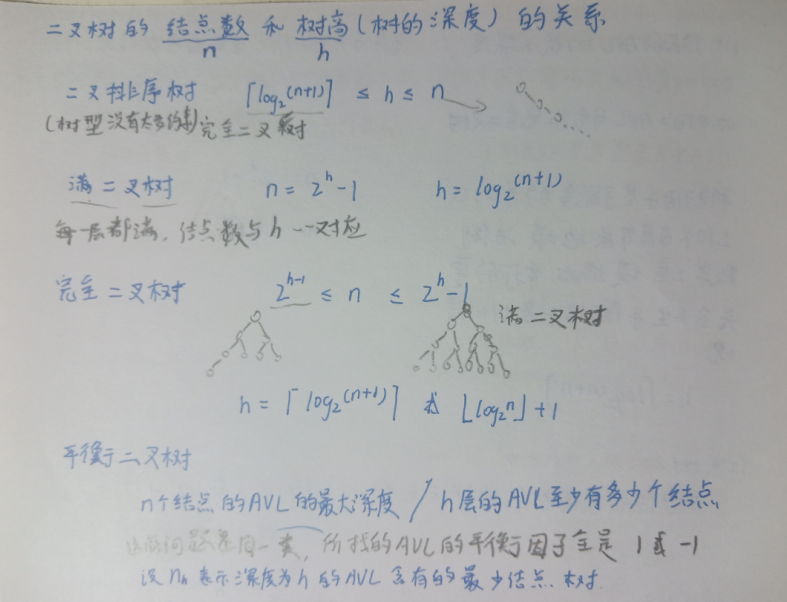 二叉树的 结点数 和 树高(树的深度) 的关系
n h
二叉排序树 ⌈log₂(n+1)⌉ ≤ h ≤ n
(树型没有太多约束) 完全二叉树
满二叉树 n = 2^h - 1 h = log₂(n+1)
每一层都满, 结点数与h 一一对应
完全二叉树 2^(h-1) ≤ n ≤ 2^h - 1
满二叉树
h = ⌈log₂(n+1)⌉ 或 ⌊log₂n⌋ + 1
平衡二叉树
n个结点的AVL的最大深度 / h层的AVL至少有多少个结点
这两问题是同一类, 所找的AVL的平衡因子全是 1 或 -1
设 nₕ 表示深度为h的AVL含有的最少结点 树.